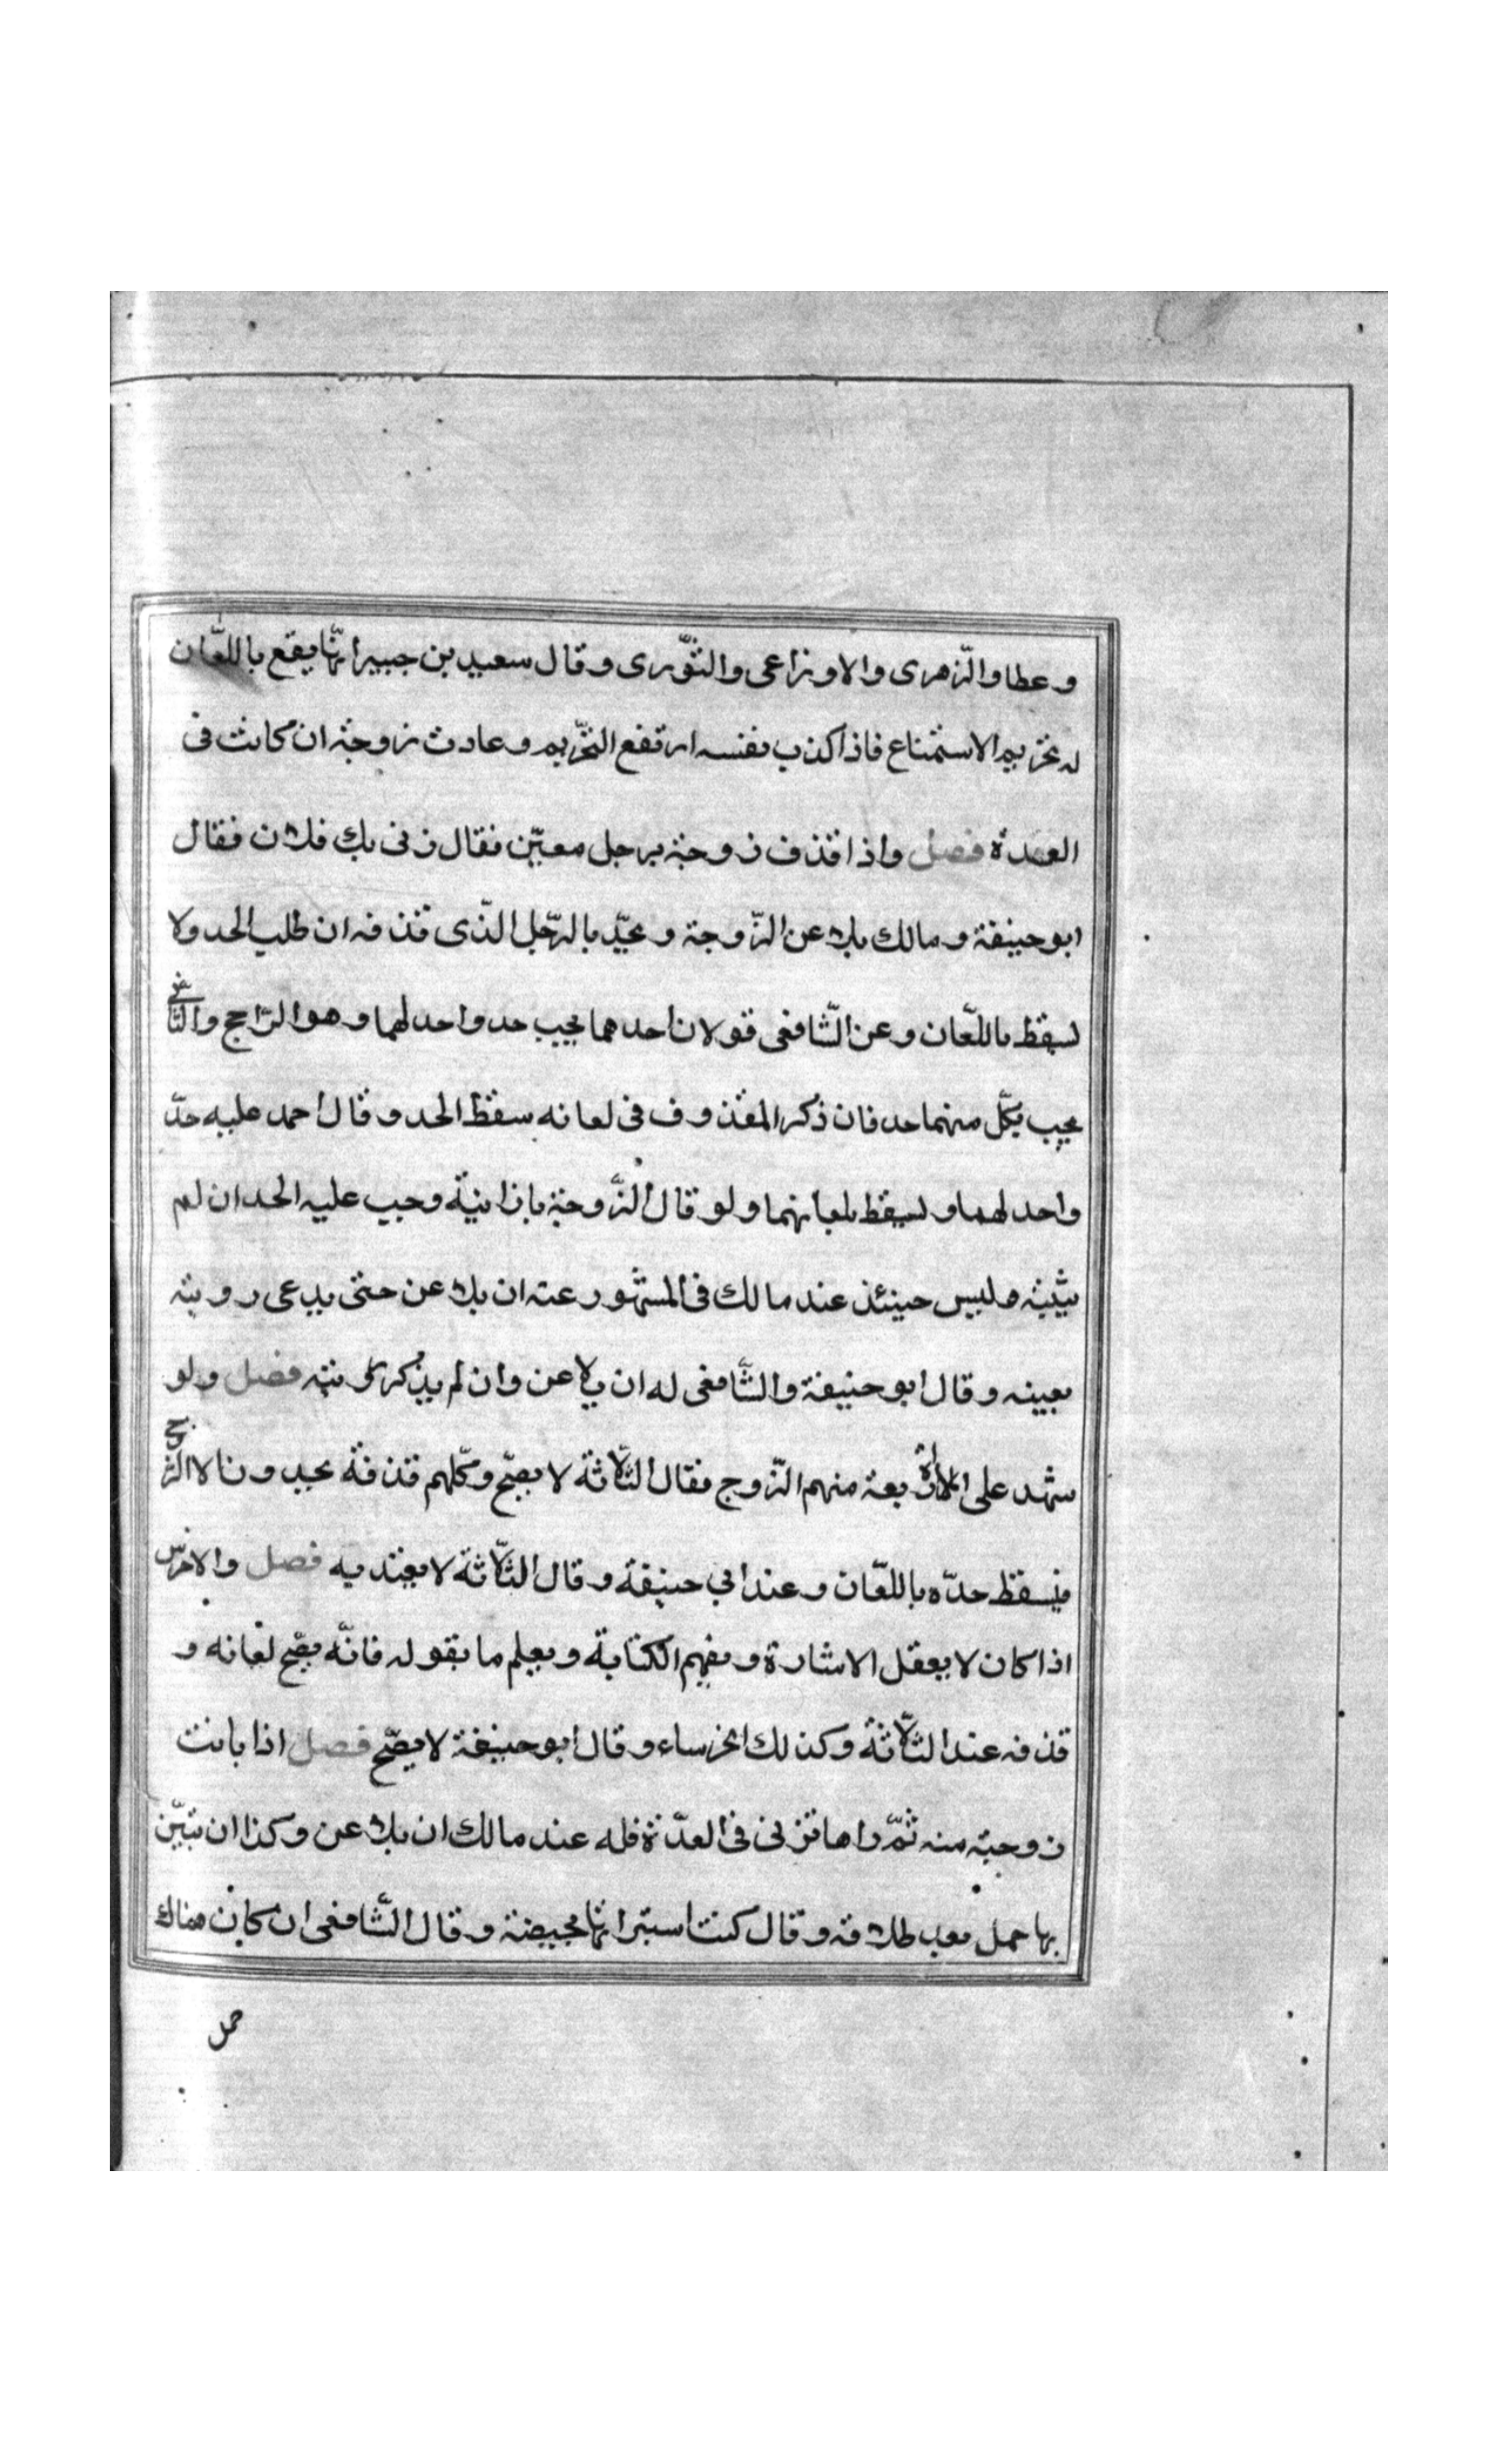 وعطا والزّهرى والاوزاعى والثّورى وقال سعيد بن جبير انّما يقع باللّعان
له تحريم الاستمتاع فاذا اكذب نفسه ارتفع التّحريم وعادت زوجته ان كانت فى
العدة فصل واذا قذف زوجته برجل معيّن فقال زنى بك فلان فقال
ابوحنيفة ومالك يلاعن الزّوجة ويحدّ بالرّجل الذّى قذفه ان طلب الحد ولا
يسقط باللّعان وعن الشّافعى قولان احدهما يجب حد واحد لهما وهو الرّاجح والثّانى
يجب بكلّ منهما حد فان ذكر المقذوف فى لعانه سقط الحد وقال احمد عليه حدّ
واحد لهما ويسقط بلعانهما ولو قال الزّوجة يا زانية وجب عليه الحد ان لم
يثبته وليس حينئذ عند مالك فى المشهور عنه ان يلاعن حتى يدعى رويته
بعينه وقال ابو حنيفة والشّافعى له ان يلاعن وان لم يذكر رويته فصل ولو
شهد على المراة اربعة منهم الزّوج فقال الثّلاثة لا يصحّ وكلّهم قذفة يحدون الا الزّوج
فيسقط حدّه باللّعان وعند ابي حنيفة وقال الثّلاثة لا يعتد به فصل والاخرس
اذا كان لا يعقل الاشارة ويفهم الكتابة ويعلم ما يقوله فانّه يصحّ لعانه و
قذفه عند الثّلاثة وكذلك الخرساء وقال ابو حنيفة لا يصحّ فصل اذا بانت
زوجته منه ثمّ راها تزنى فى العدّة فله عند مالك ان يلاعن وكذا ان تبيّن
بها حمل بعد طلاقه وقال كنت استبراتها بحيضة وقال الشّافعى ان كان هناك
حمل